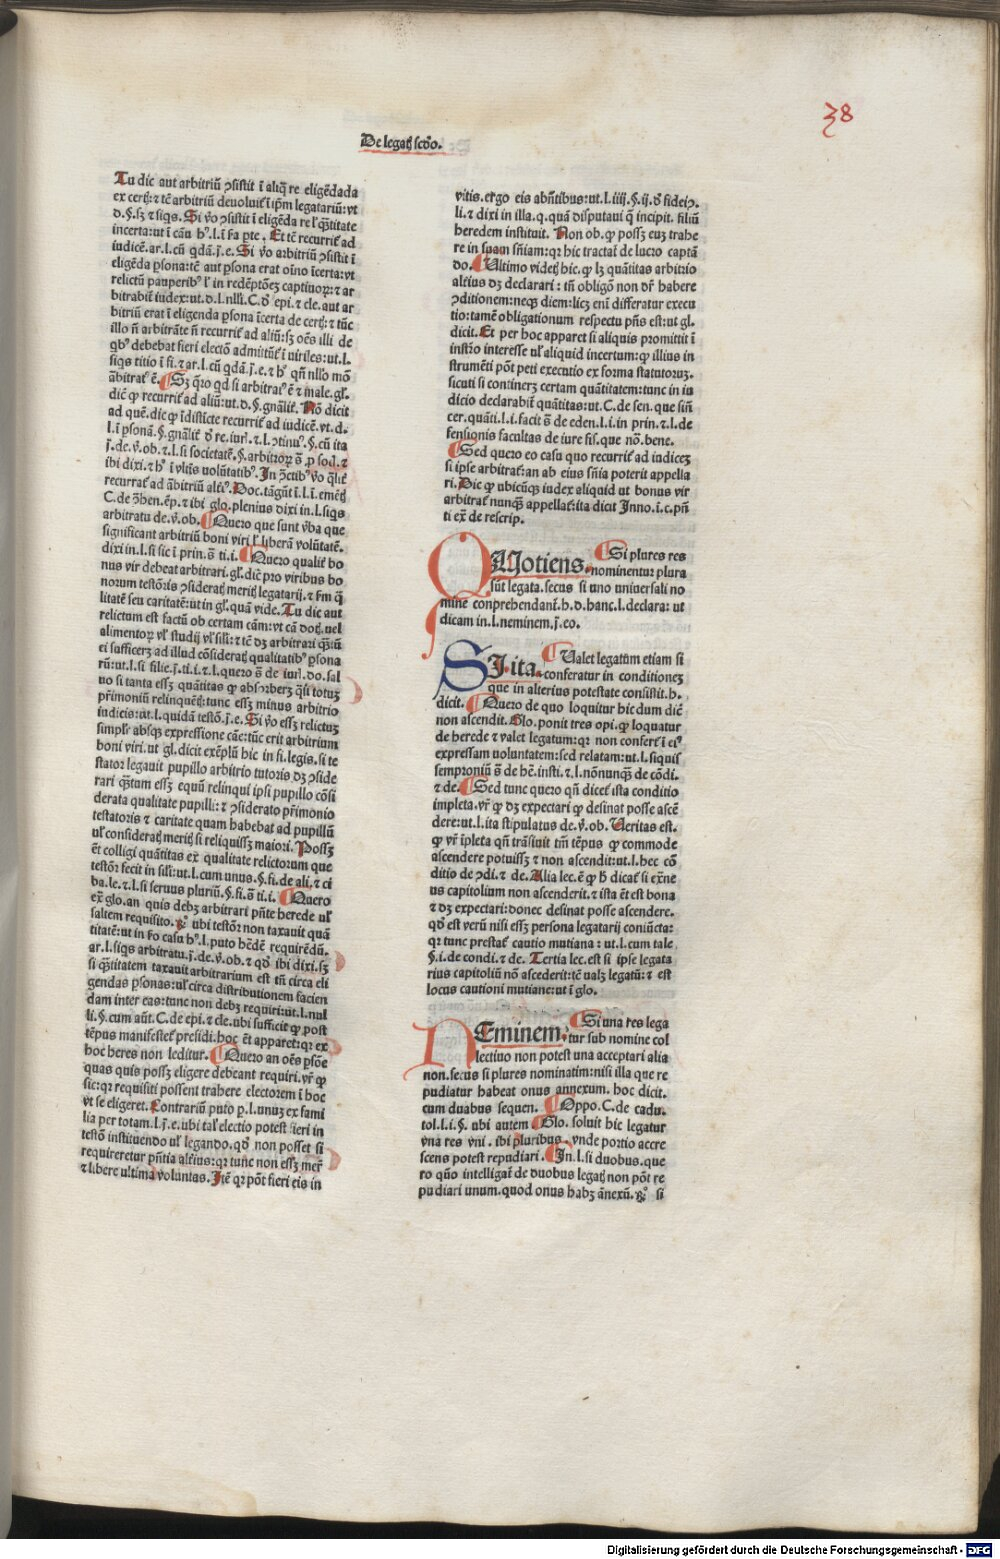 38
De legatꝭ scďo.
Tu dic aut arbitriū ꝯsistit ī aliq̄ re eligēdada
ex certꝭ: ⁊ tē arbitriū deuoluit̄ ī ip̄m legatariū: vt
d. §. sꝫ ⁊ siqs. Si v̄o ꝯsistit ī eligēda re l' q̄titate
incerta: ut ī cāu hꝰ. l. ī fa pte. Et tē recurrit̄ ad
iudicē. ar. l. cū qdā. j. e. Si v̄o arbitriū ꝯsistit ī
eligēda ꝑsona: tē aut ꝑsona erat oīno īcerta: vt
relictū pauperibꝰ l' in redēptōeꝫ captiuoꝝ: ⁊ ar
bitrabit̄ iudex: ut. d. l. nlli. C. đ epi. ⁊ cle. aut ar
bitriū erat ī eligenda ꝑsona īcerta de certꝭ: ⁊ tūc
illo nō arbitrāte nō recurrit̄ ad aliū: sꝫ oēs illi de
qbꝰ debebat fieri electō admittūt̄ ī viriles: ut. l.
siqs titio ī fi. ⁊ ar. l. cū qdā. j. e. ⁊ hꝰ qn̄ nllo mō
ābitrat̄ ē. ¶ Sꝫ q̄ro qd si arbitratꝰ ē ⁊ male. gl'.
dic̄ ꝙ recurrit̄ ad aliū: ut. d. §. gn̄alit̄. Nō dicit
ad quē. dic ꝙ īdisticte recurrit̄ ad iudicē. vt. d.
l. ī ꝑsonā. §. gn̄alit̄ đ re. iur̄. ⁊ l. ꝯtinuꝰ. §. cū ita
j. de. v̄. ob. ⁊ l. si societatē. §. arbitroꝝ s̄. ꝓ soc̄. ⁊
ibi dixi. ⁊ hꝰ ī vl'tīs volūtatibꝰ. In ꝯ̄ctibꝰ v̄o q̄lit̄
recurrat̄ ad ābitriū altiꝰ. Hoc. tāgūt ī. l. ī. emētꝭ
C. de ꝯ̄hen. ēp. ⁊ ibi glo. plenius dixi in. l. siqs
arbitratu de. v̄. ob. ¶ Quero que sunt v̄ba que
significant arbitriū boni viri l' liberā volūtatē.
dixi in. l. si sic ī prin. s̄ ti. i. ¶ Quero qualit̄ bo
nus vir debeat arbitrari. gl'. dic̄ pro viribus bo
norum testōris ꝯsideratꝭ meritꝭ legatarij. ⁊ fm q̄
litatē seu caritatē: ut in gl'. quā vide. Tu dic aut
relictum est factū ob certam cām: vt cā dotꝭ. uel
alimentoꝝ vl' studij vl' sili: ⁊ tē dꝫ arbitrari q̄tū
ei sufficerꝫ ad illud cōsideratꝭ qualitatibꝰ ꝑsona
rū: ut. l. si filie. j. ti. i. ⁊. l. quero s̄ de iur̄. do. sal
uo si tanta esſꝫ quātitas ꝙ absorberꝫ q̄si totuꝫ
pr̄imoniū relinquētꝭ: tunc esſꝫ minus arbitrio
iudicis: ut. l. quidā testō. j. e. Si v̄o esſꝫ relictuꝫ
simplr̄ absqꝫ expressione cāe: tūc erit arbitrium
boni viri. ut gl'. dicit exēplū hic in fi. legis. si te
stator legauit pupillo arbitrio tutoris dꝫ ꝯside
rari q̄tum esſꝫ equū relinqui ipsi pupillo cōsi
derata qualitate pupilli: ⁊ ꝯsiderato pr̄imonio
testatoris ⁊ caritate quam habebat ad pupillū
ul' consideratꝭ meritꝭ si reliquisſꝫ maiori. Possꝫ
ēt colligi quātitas ex qualitate relictorum que
testōr fecit in sili: ut. l. cum unus. §. fi. de ali. ⁊ ci
ba. le. ⁊. l. si seruus pluriū. §. fi. s̄ ti. i. ¶ Quero
ex glo. an quis debꝫ arbitrari pn̄te herede ul'
saltem requisito. ꝶ ubi testōr non taxauit quā
titatē: ut in ħo casu hꝰ. l. puto hēdē requirēdū.
ar. l. siqs arbitratu. j. de. v̄. ob. ⁊ qđ ibi dixi. sꝫ
si q̄titatem taxauit arbitrarium est tn̄ circa eli
gendas ꝑsonas: ul' circa distributionem facien
dam inter eas: tunc non debꝫ requiri: ut. l. nul
li. §. cum aūt. C. de epi. ⁊ cle. ubi sufficit ꝙ post
tēpus manifestet̄ presidi. hoc ēt apparet: qꝛ ex
hoc heres non leditur. ¶ Quero an oēs ꝑsōe
quas quis possꝫ eligere debeant requiri. vr̄ ꝙ
sic: qꝛ requisiti possent trahere electorem ī hoc
vt se eligeret. Contrariū puto ꝑ. l. unuꝫ ex fami
lia per totam. l. j. e. ubi tal' electio potest fieri in
testō instituendo ul' legando. qđ non posset si
requireretur pn̄tia altiꝰ: qꝛ tunc non esſꝫ mer̄
⁊ libere ultima voluntas. Itē qꝛ pōt fieri eis in
vitis. ergo eis abn̄tibus: ut. l. iiij. §. ij. đ fideiꝯ.
li. ⁊ dixi in illa. q. quā disputaui q̄ incipit. filiū
heredem instituit. Non ob. ꝙ possꝫ euꝫ trahe
re in suam sn̄iam: qꝛ hic tractat̄ de lucro captā
do. ¶ Ultimo videtꝭ hic. ꝙ lꝫ quātitas arbitrio
alteriꝰ dꝫ declarari: tn̄ obligō non dr̄ habere
ꝯditionem: neqꝫ diem: licꝫ eni differatur execu
tio: tamē obligationum respectu pn̄s est: ut gl.
dicit. Et per hoc apparet si aliquis promittit ī
instr̄o interesse ul' aliquid incertum: ꝙ illius in
strumēti pōt peti executio ex forma statutoruꝫ.
sicuti si continerꝫ certam quātitatem: tunc in iu
dicio declarabit̄ quātitas: ut. C. de sen. que sin̄
cer. quāti. l. i. facit s̄ de eden. l. i. in prin. ⁊. l. de
fensionis facultas de iure fis. que nō. bene.
¶ Sed quero eo casu quo recurrit̄ ad iudiceꝫ
si ipse arbitrat̄: an ab eius sn̄ia poterit appella
ri. Dic ꝙ ubicūqꝫ iudex aliquid ut bonus vir
arbitrat̄ nunqꝫ appellat̄: ita dicit Inno. ī. c. pn̄
ti ex̄ de rescrip.
QUotiens. ¶ Si plures res
nominentur plura
sūt legata. secus si uno uniuersali no
mine conprehendant̄. h. d. hanc. l. declara: ut
dicam in. l. neminem. j. eo.
SI ita. ¶ Valet legatum etiam si
conferatur in conditioneꝫ
que in alterius potestate consistit. h.
dicit. ¶ Quero de quo loquitur hic dum dic̄
non ascendit. Glo. ponit tres opi. ꝙ loquatur
de herede ⁊ valet legatum: qꝛ non confert̄ ī eiꝰ
expressam uoluntatem: sed relatam: ut. l. siquis
semproniū s̄ de hē. insti. ⁊. l. nōnunqꝫ de cōdi.
⁊ de. ¶ Sed tunc quero qn̄ dicet̄ ista conditio
impleta. vr̄ ꝙ dꝫ expectari ꝙ desinat posse ascē
dere: ut. l. ita stipulatus de. v̄. ob. Veritas est.
ꝙ vr̄ īpleta qn̄ trāsiuit tm̄ tēpus ꝙ commode
ascendere potuisſꝫ ⁊ non ascendit: ut. l. hec cō
ditio de ꝯdi. ⁊ de. Alia lec. ē ꝙ ħ dicat̄ si ex̄ne
us capitolium non ascenderit. ⁊ ista ēt est bona
⁊ dꝫ expectari: donec desinat posse ascendere.
qđ est verū nisi esſꝫ persona legatarij coniūcta:
qꝛ tunc prestat̄ cautio mutiana: ut. l. cum tale
§. i. de condi. ⁊ de. Tertia lec. est si ipse legata
rius capitoliū nō ascēderit: tē ualꝫ legatū: ⁊ est
locus cautioni mutiane: ut ī glo.
NEminem. ¶ Si una res lega
tur sub nomine col
lectiuo non potest una acceptari alia
non. secus si plures nominatim: nisi illa que re
pudiatur habeat onus annexum. hoc dicit.
cum duabus sequen. ¶ Oppo. C. de cadu.
tol. l. i. §. ubi autem ¶ Glo. soluit hic legatur
vna res vni. ibi pluribus. vnde portio accre
scens potest repudiari. ¶ In. l. si duobus. que
ro quō intelligat̄ de duobus legatꝭ non pōt re
pudiari unum. quod onus habꝫ ānexū. ꝶ si
Digitalisierung gefördert durch die Deutsche Forschungsgemeinschaft - DFG